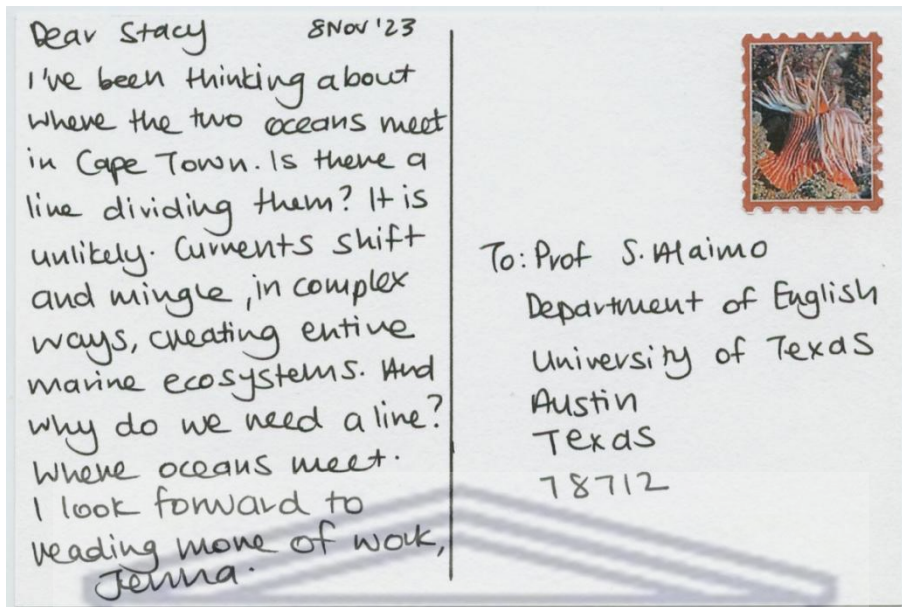 Dear Stacy 8 Nov '23
I've been thinking about
where the two oceans meet
in Cape Town. Is there a
line dividing them? It is
unlikely. Currents shift
and mingle, in complex
ways, creating entire
marine ecosystems. And
why do we need a line?
Where oceans meet.
I look forward to
reading more of work,
Jenna.
To: Prof S. Alaimo
Department of English
University of Texas
Austin
Texas
78712